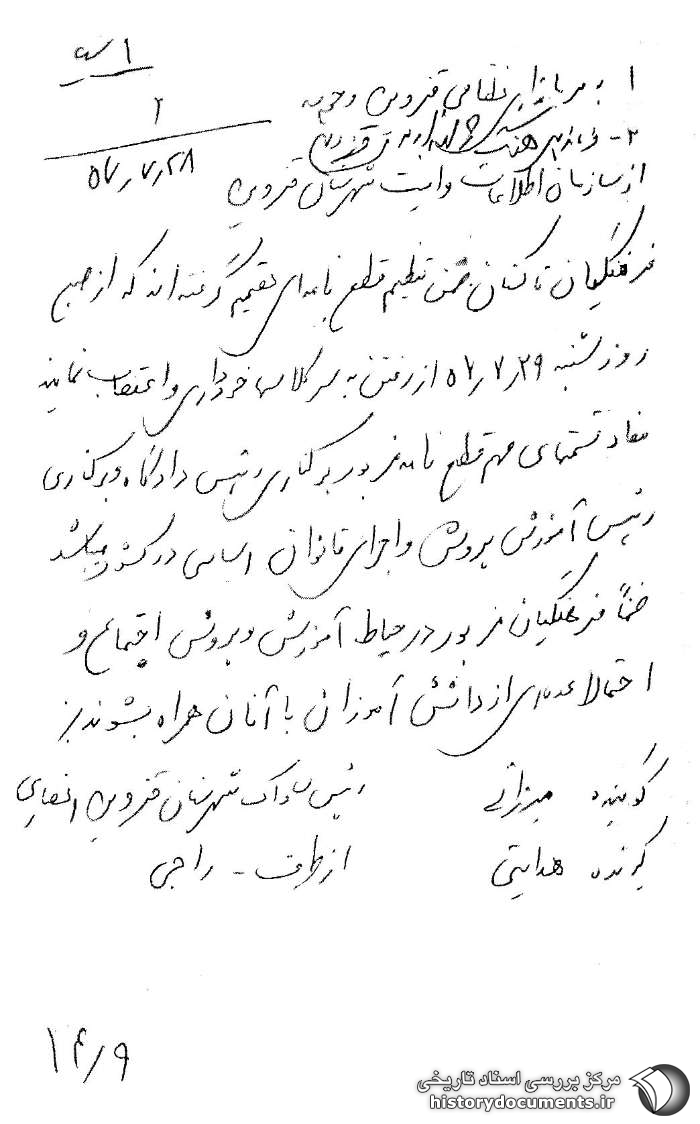 ۱
۲
۵۷٫۷٫۲۸
۱ به فرمانداری نظامی قزوین
۲- قزوین
از سازمان اطلاعات و امنیت شهرستان قزوین
فرهنگیان تاکستان ضمن تنظیم قطع نامه‌ای تصمیم گرفته‌اند که از صبح
روز شنبه ۵۷٫۷٫۲۹ از رفتن به سر کلاسها خودداری و اعتصاب نمایند
مفاد قسمتهای مهم قطع نامه مزبور برکناری رئیس دادگاه و برکناری
رئیس آموزش پرورش و اجرای قانون اساسی در کشور میباشد
ضمناً فرهنگیان مزبور در حیاط آموزش و پرورش اجتماع و
احتمالا عده‌ای از دانش آموزان با آنان همراه بشوند
گوینده میرزائی رئیس ساواک شهرستان قزوین
گیرنده هدایتی از طرف - راجی
۱۴٫۹
مرکز بررسی اسناد تاریخی
historydocuments.ir